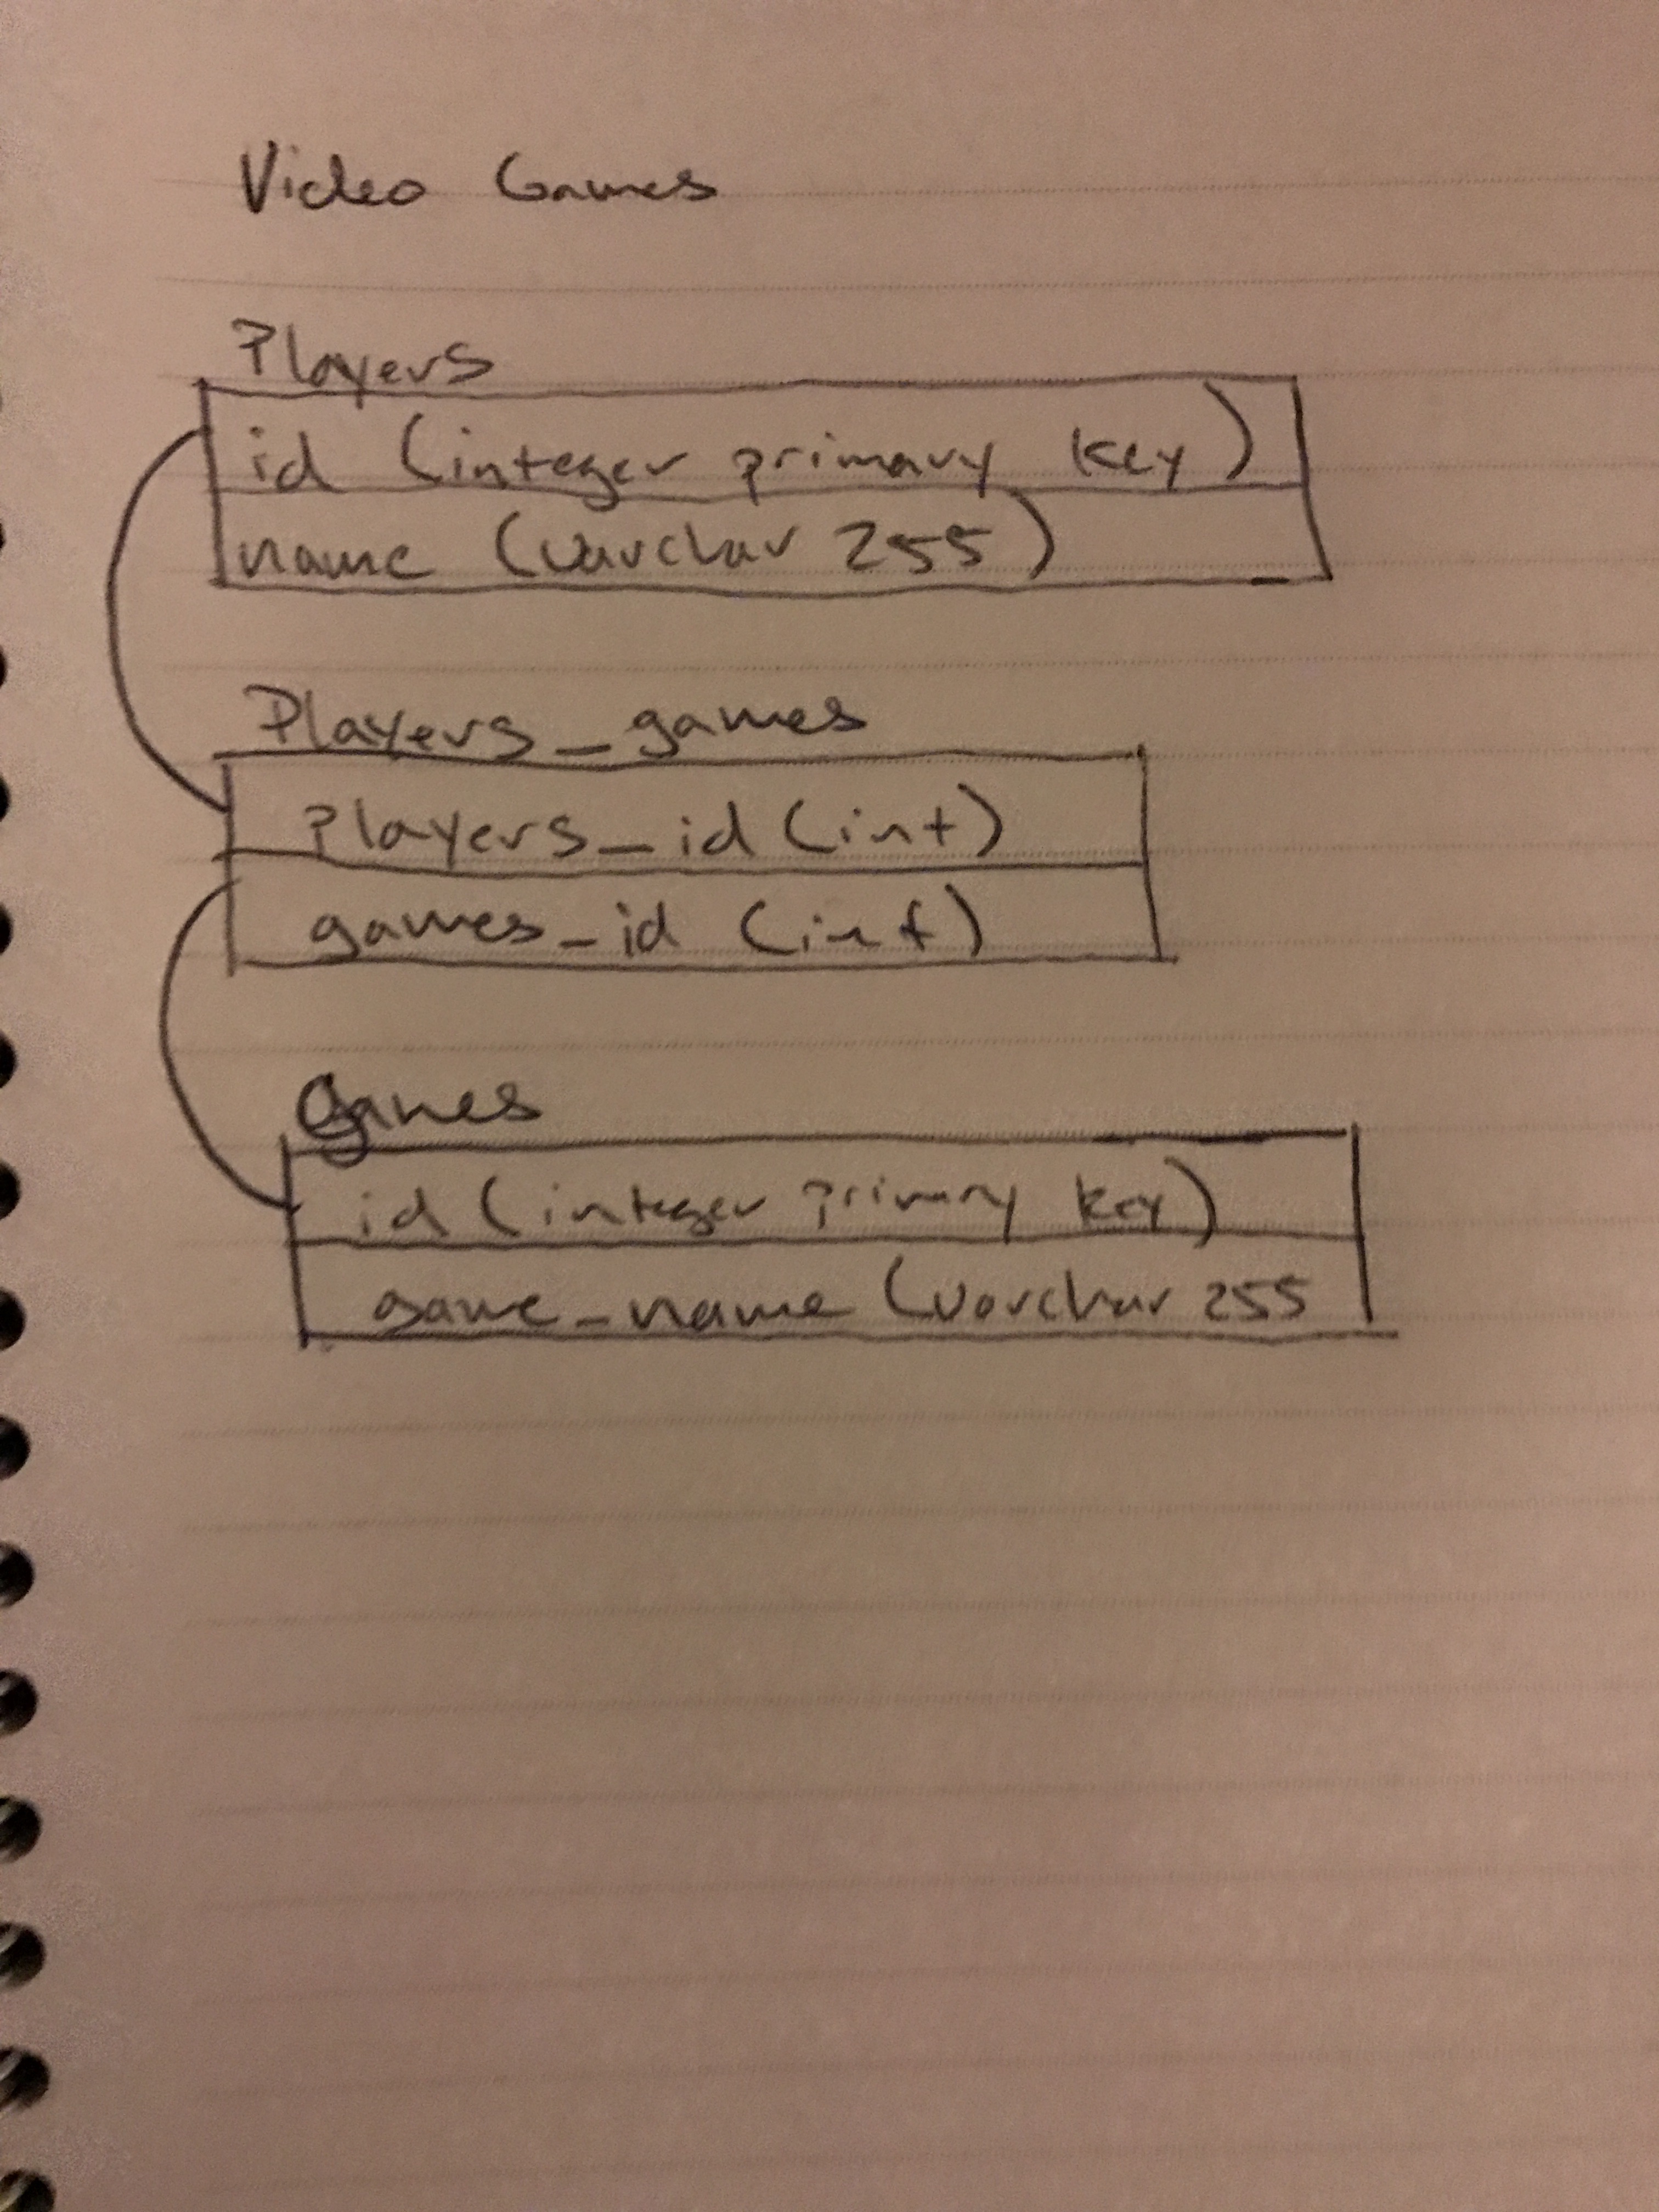 Video Games
Players
id (integer primary key)
name (varchar 255)
Players_games
Players_id (int)
games_id (int)
Games
id (integer primary key)
game_name (varchar 255